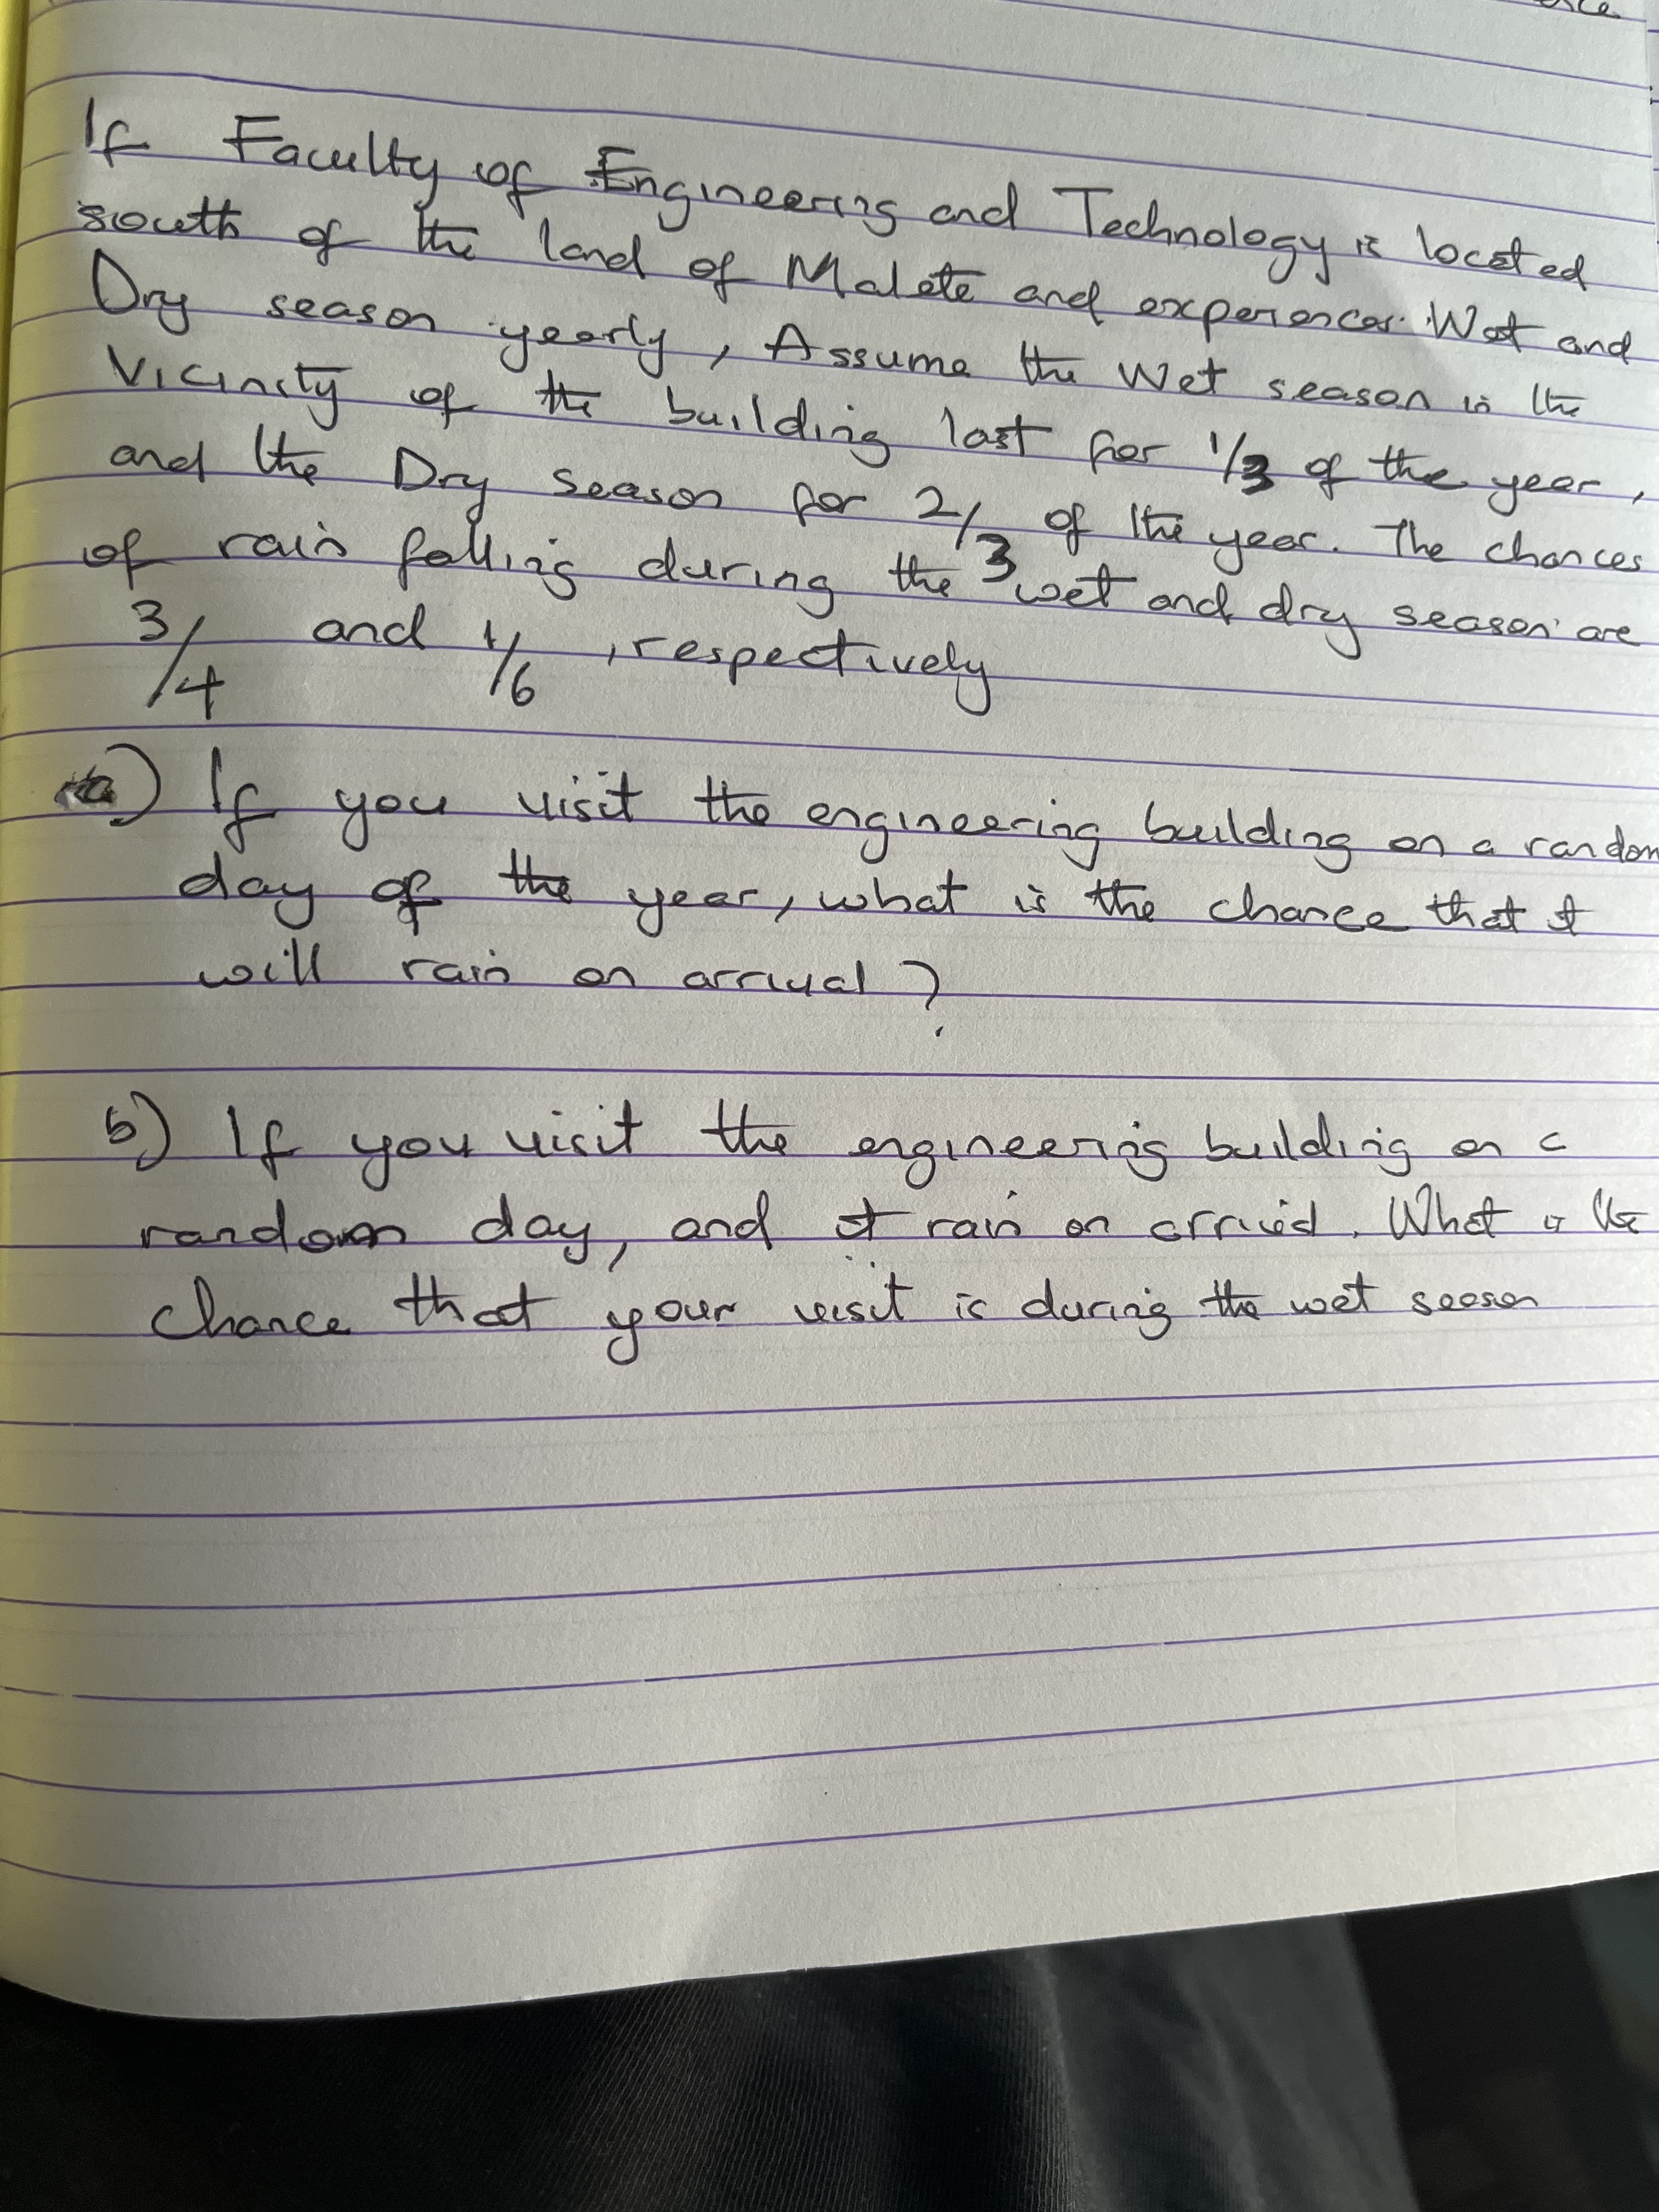 If Faculty of Engineering and Technology is located
south of the land of Malete and experiences Wet and
Dry season yearly, Assume the Wet season in the
Vicinity of the building last for 1/3 of the year,
and the Dry season for 2/3 of the year. The chances
of rain falling during the wet and dry season are
3/4 and 1/6, respectively
a) If you visit the engineering building on a random
day of the year, what is the chance that it
will rain on arrival?
b) If you visit the engineering building on a
random day, and it rain on arrival. What is the
chance that your visit is during the wet season